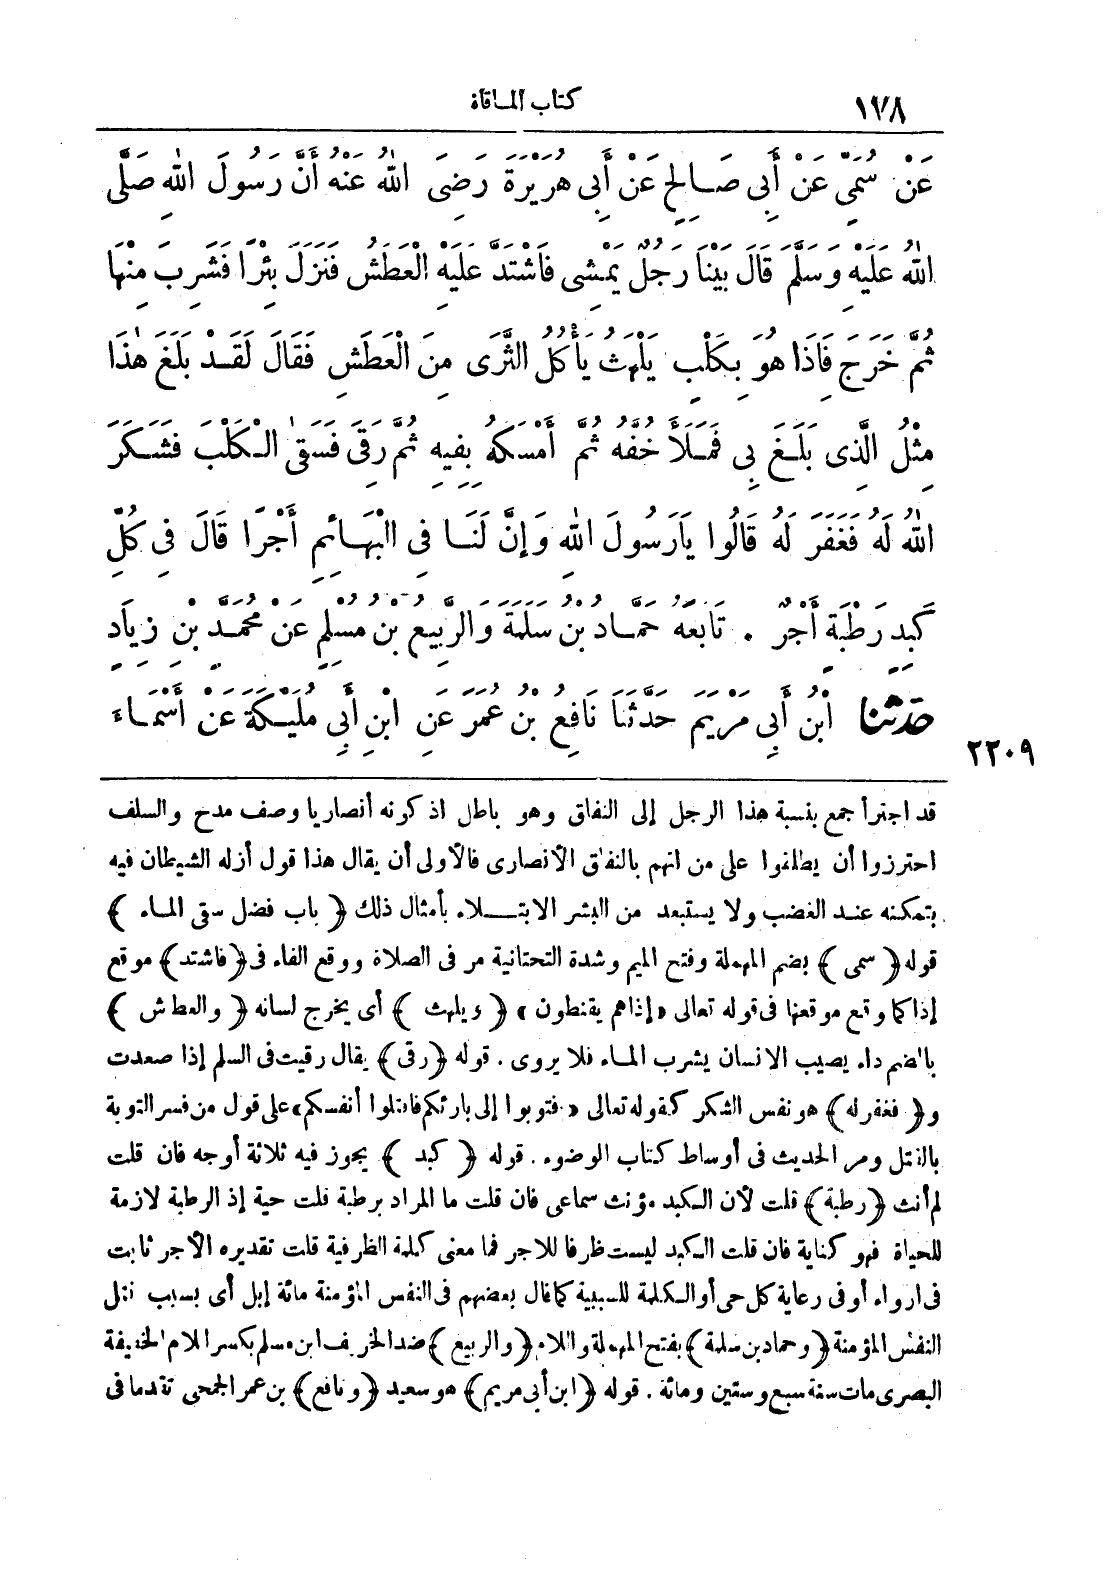 ١٧٨
كتاب المساقاة
عَنْ سُمَيٍّ عَنْ أَبِي صَالِحٍ عَنْ أَبِي هُرَيْرَةَ رَضِيَ اللهُ عَنْهُ أَنَّ رَسُولَ اللهِ صَلَّى
اللهُ عَلَيْهِ وَسَلَّمَ قَالَ بَيْنَا رَجُلٌ يَمْشِي فَاشْتَدَّ عَلَيْهِ الْعَطَشُ فَنَزَلَ بِئْرًا فَشَرِبَ مِنْهَا
ثُمَّ خَرَجَ فَإِذَا هُوَ بِكَلْبٍ يَلْهَثُ يَأْكُلُ الثَّرَى مِنَ الْعَطَشِ فَقَالَ لَقَدْ بَلَغَ هٰذَا
مِثْلُ الَّذِي بَلَغَ بِي فَمَلَأَ خُفَّهُ ثُمَّ أَمْسَكَهُ بِفِيهِ ثُمَّ رَقِيَ فَسَقَى الْكَلْبَ فَشَكَرَ
اللهُ لَهُ فَغَفَرَ لَهُ قَالُوا يَارَسُولَ اللهِ وَإِنَّ لَنَا فِي الْبَهَائِمِ أَجْرًا قَالَ فِي كُلِّ
كَبِدٍ رَطْبَةٍ أَجْرٌ . تَابَعَهُ حَمَّادُ بْنُ سَلَمَةَ وَالرَّبِيعُ بْنُ مُسْلِمٍ عَنْ مُحَمَّدِ بْنِ زِيَادٍ
حَدَّثَنَا ابْنُ أَبِي مَرْيَمَ حَدَّثَنَا نَافِعُ بْنُ عُمَرَ عَنِ ابْنِ أَبِي مُلَيْكَةَ عَنْ أَسْمَاءَ
٢٢٠٩
قد اجترأ جمع بنسبة هذا الرجل إلى النفاق وهو باطل اذ كونه أنصاريا وصف مدح والسلف
احترزوا أن يطلقوا على من اتهم بالنفاق الأنصارى فالأولى أن يقال هذا قول أزله الشيطان فيه
بتمكنه عند الغضب ولا يستبعد من البشر الابتلاء بأمثال ذلك ﴿ باب فضل سقى الماء ﴾
قوله ﴿ سمى ﴾ بضم المهملة وفتح الميم وشدة التحتانية مر فى الصلاة ووقع الفاء فى ﴿فاشتد﴾ موقع
إذا كما وقع موقعها فى قوله تعالى «إذاهم يقنطون» ﴿ ويلهث ﴾ أى يخرج لسانه ﴿ والعطاش ﴾
بالضم داء يصيب الانسان يشرب الماء فلا يروى . قوله ﴿رقى﴾ يقال رقيت فى السلم إذا صعدت
و﴿ فغفر له﴾ هو نفس الشكر كقوله تعالى «فتوبوا إلى بارئكم فاقتلوا أنفسكم» على قول من فسر التوبة
بالقتل ومر الحديث فى أوساط كتاب الوضوء . قوله ﴿ كبد ﴾ يجوز فيه ثلاثة أوجه فان قلت
لم أنث ﴿رطبة﴾ قلت لأن الكبد مؤنث سماعى فان قلت ما المراد برطبة قلت حية إذ الرطبة لازمة
للحياة فهو كناية فان قلت الكبد ليست ظرفا للاجر فما معنى كلمة الظرفية قلت تقديره الأجر ثابت
فى ارواء أو فى رعاية كل حى أو الكلمة للسببية كما قال بعضهم فى النفس المؤمنة مائة إبل أى بسبب قتل
النفس المؤمنة ﴿وحماد بن سلمة﴾ بفتح المهملة واللام ﴿والربيع﴾ ضد الخريف ابن مسلم بكسر اللام الخفيفة
البصرى مات سنة سبع وستين ومائة . قوله ﴿ابن أبى مريم﴾ هو سعيد ﴿ونافع﴾ بن عمر الجمحى تقدما فى